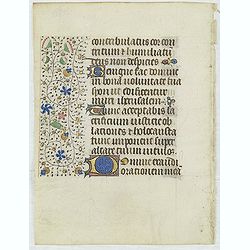 contribulatus cor con
tritum et humiliatum
deus non despicies
Benigne fac domine
in bona voluntate tua
syon ut edificentur
muri iherusalem
Tunc acceptabis sa
crificium iusticie ob
lationes et holocausta
tunc imponent super
altare tuum vitulos
Domine exaudi
orationem meam